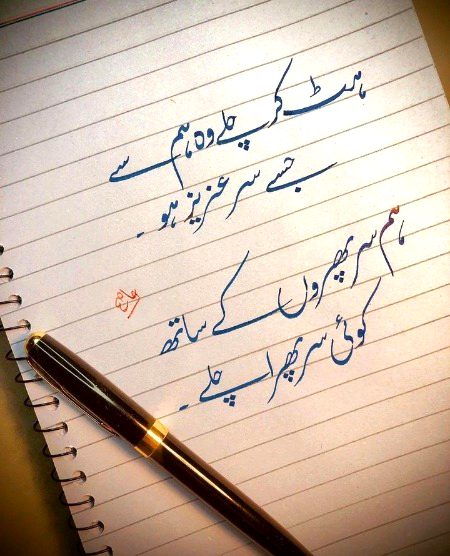 ہٹ کر چلے وہ ہم سے
جسے سر عزیز ہو۔
ہم سر پھروں کے ساتھ
کوئی سر پھرا چلے۔